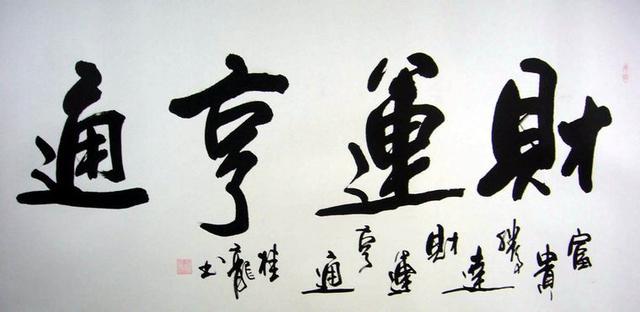 財運亨通
富貴騰達財運亨通
桂龍书